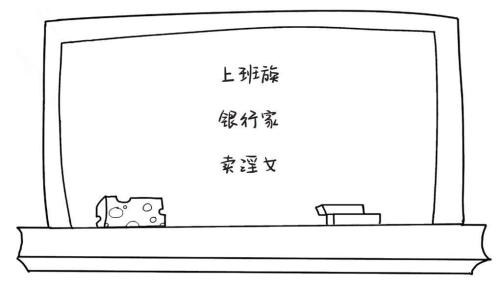 上班族
银行家
卖淫女